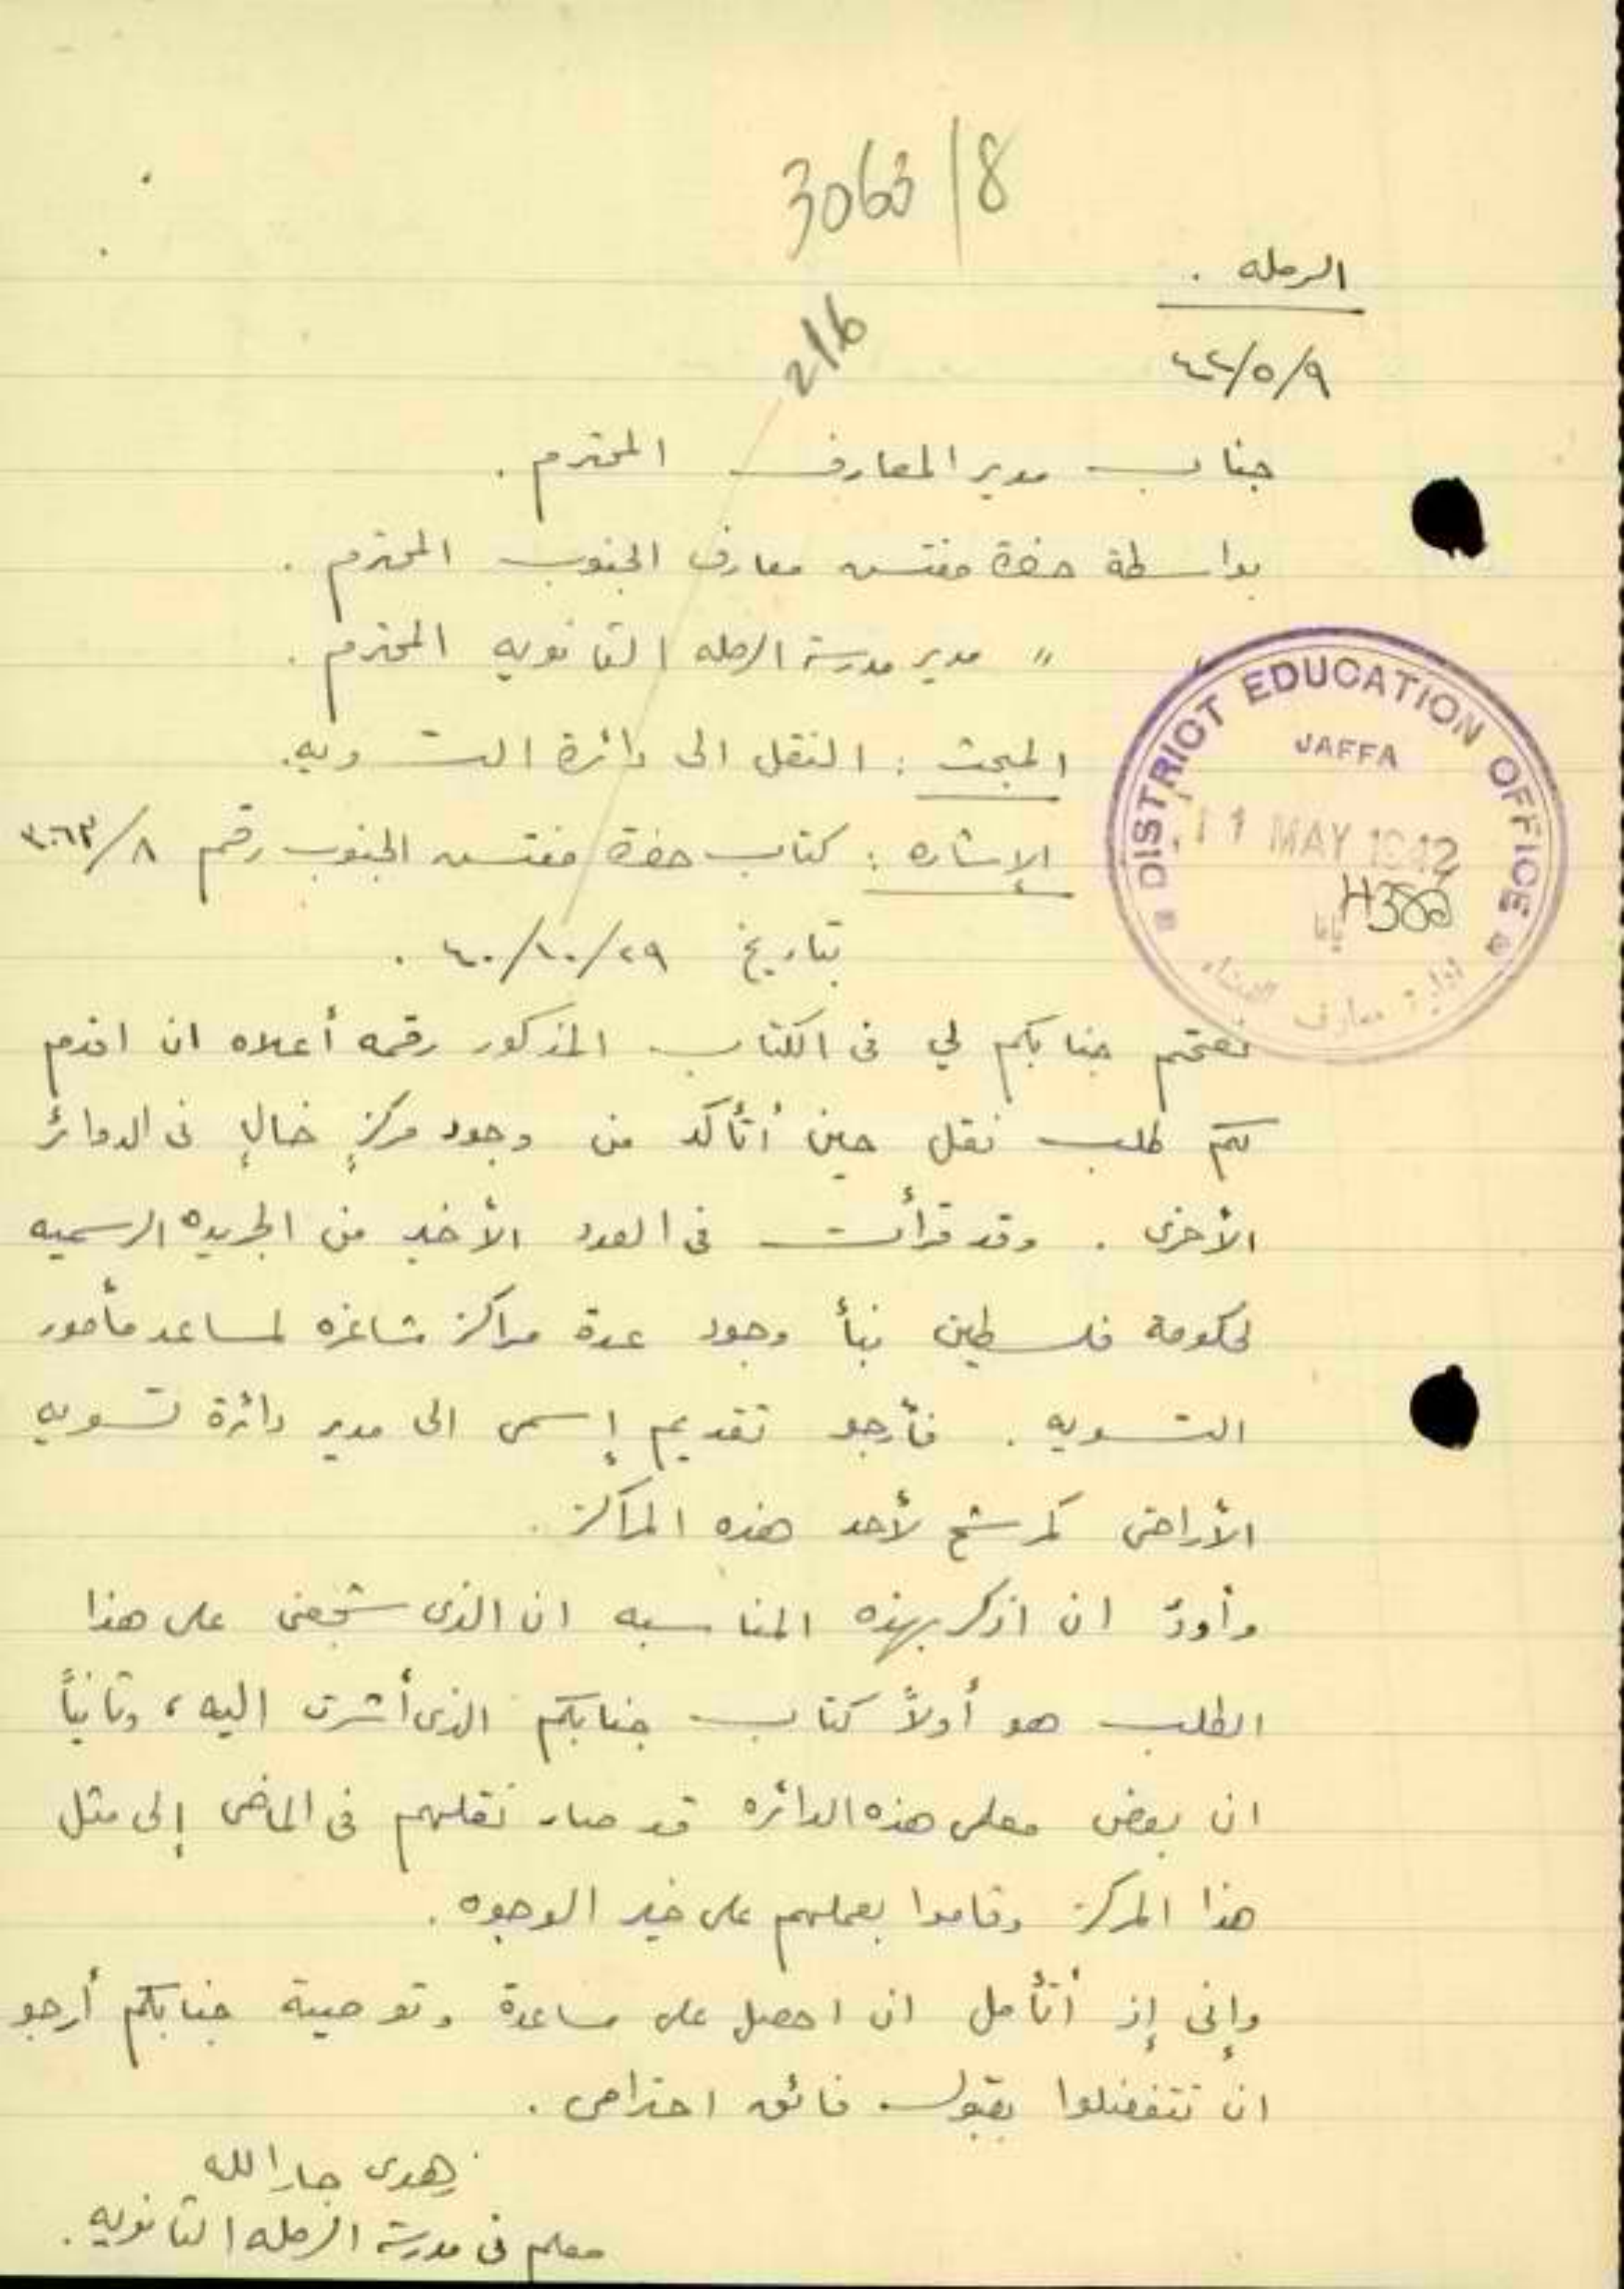 3063/8
الرمله .
٤٢/٥/٩
2/6
جناب مدير المعارف المحترم .
بواسطة حضرة مفتش معارف الجنوب المحترم .
" مدير مدرسة الرمله الثانويه المحترم .
المبحث : النقل الى دائرة التسويه .
الإشاره : كتاب حضرة مفتش الجنوب رقم ٣٠٦٣/٨
بتاريخ ٤٠/١٠/٢٩ .
DISTRICT EDUCATION OFFICE
JAFFA
11 MAY 1942
يافا
ادارة معارف اللواء
جنابكم لي فى الكتاب المذكور رقمه أعلاه ان اقدم
لكم طلب نقل حين أتأكد من وجود مركزٍ خالٍ فى الدوائر
الأخرى . وقد قرأت فى العدد الأخير من الجريده الرسميه
لحكومة فلسطين نبأ وجود عدة مراكز شاغره لمساعد مأمور
التسويه . فأرجو تقديم إسمى الى مدير دائرة تسويه
الأراضى كمرشح لأحد هذه المراكز .
وأودّ ان اذكر بهذه المناسبه ان الذى شجعنى على هذا
الطلب هو أولاً كتاب جنابكم الذى أشرت اليه ، وثانياً
ان بعض معلمى هذه الدائره قد صار نقلهم فى الماضى إلى مثل
هذا المركز وقاموا بعملهم على خير الوجوه .
وإنى إذ أتأمل ان احصل على مساعدة وتوصية جنابكم أرجو
ان تتفضلوا بقبول فائق احترامى .
زهدى جارالله
معلم فى مدرسة الرمله الثانويه .